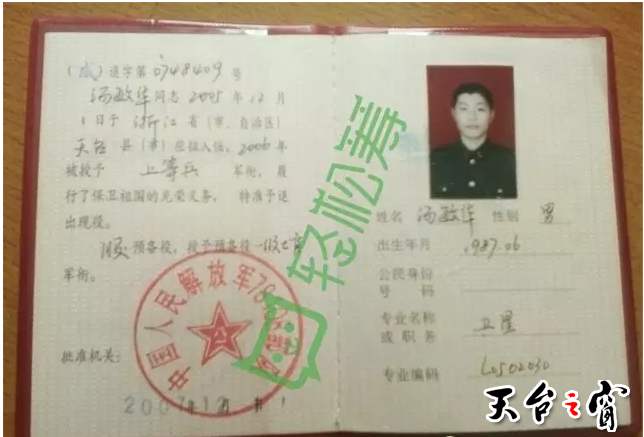 (成)退字第0748409号
汤敏华同志2005年12月
1日于浙江省(市、自治区)
天台县(市)应征入伍,2006年
被授予上等兵军衔,履
行了保卫祖国的光荣义务,特准予退
出现役。
服预备役,授予预备役一级士官
军衔。
中国人民解放军78
批准机关:
2007年12月1
姓名 汤敏华 性别 男
出生年月 1987.06
公民身份
号码
专业名称
或职务 卫星
专业编码 L0502030
轻松筹
天台之窗